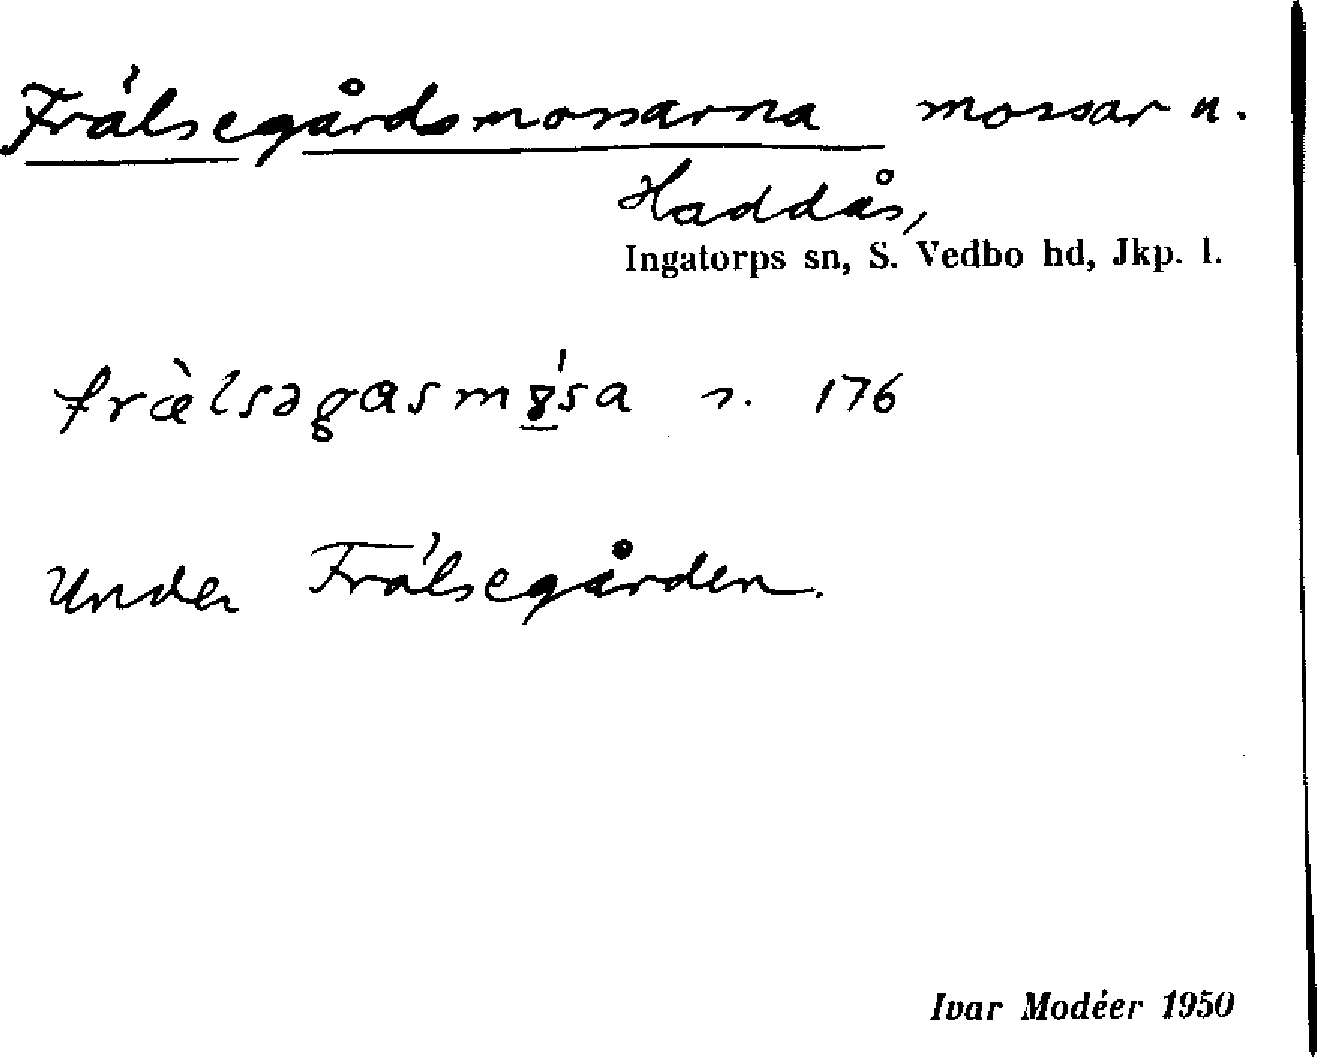 Frälsegårdsmossarna mossar n.
Haddås,
Ingatorps sn, S. Vedbo hd, Jkp. l.
s. 176
Under Frälsegården.
Ivar Modéer 1950